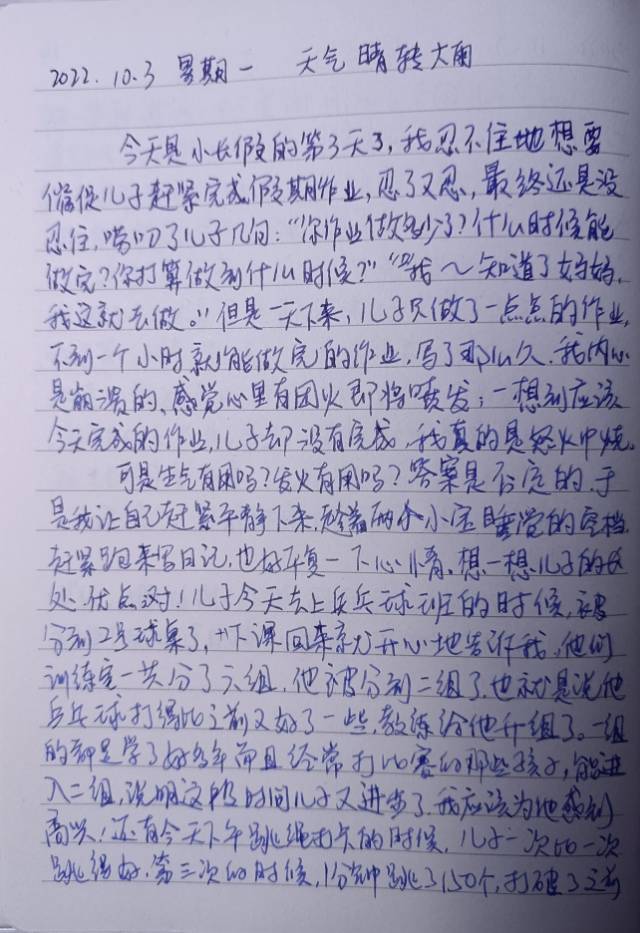 2022.10.3 星期一 天气 晴转大雨
今天是小长假的第3天了,我忍不住地想要
催促儿子赶紧完成假期作业,忍了又忍,最终还是没
忍住,唠叨了儿子几句:“你作业做多少了?什么时候能
做完?你打算做到什么时候?”“我~知道了妈妈,
我这就去做。”但是一天下来,儿子只做了一点点的作业,
不到一个小时就能做完的作业,写了那么久,我内心
是崩溃的、感觉心里有团火即将喷发;一想到应该
今天完成的作业,儿子却没有完成,我真的是怒火中烧。
可是生气有用吗?发火有用吗?答案是否定的,于
是我让自己赶紧平静下来,趁着两个小宝睡觉的空档,
赶紧跑来写日记,也好平复一下心情,想一想儿子的长
处、优点对!儿子今天去上乒乓球班的时候,被
分到2号球桌了,下课回来就开心地告诉我,他们
训练室一共分了六组,他被分到二组了,也就是说他
乒乓球打得比之前又好了一些,教练给他升组了。一组
的都是学了好多年而且经常打比赛的那些孩子,能进
入二组,说明这段时间儿子又进步了,我应该为他感到
高兴!还有今天下午跳绳打卡的时候,儿子一次比一次
跳得好,第三次的时候,1分钟跳了150个,打破了之前